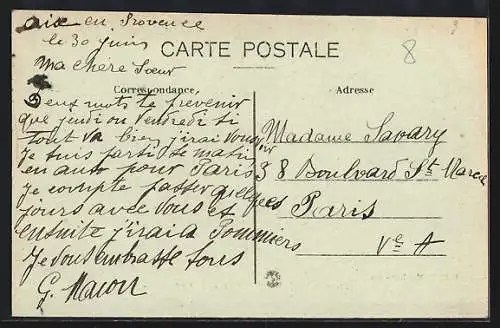 Aix en Provence
le 30 juin
CARTE POSTALE
Ma chère Soeur
Correspondance
Adresse
Deux mots te prevenir
que jeudi ou Vendredi si
tout va bien j'irai vous voir
Je suis parti se matin
en auto pour Paris
Je compte passer quelques
jours avec vous et
ensuite j'irai a Pommiers
Je vous embrasse tous
G. Maron
Madame Savary
38 Boulvard St Marcel
Paris
Ve A
8